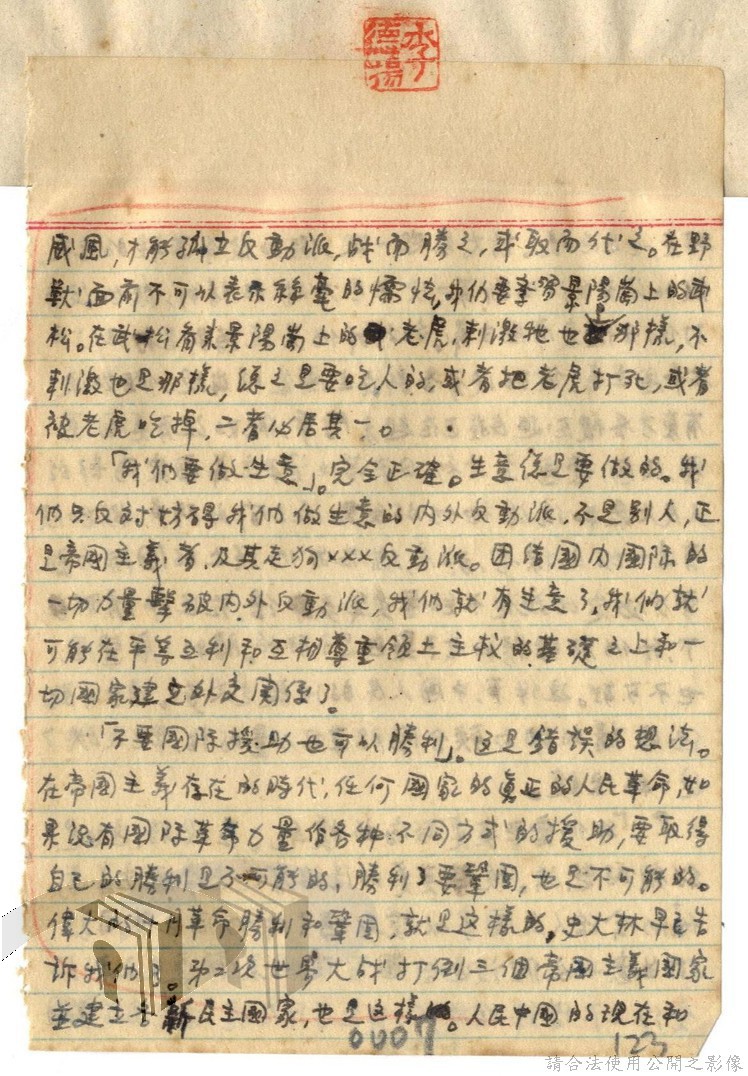 李德揚
威風,才能孤立反動派,战而勝之,或取而代之。在野
獸面前不可以表示絲毫的懦怯,我们要学習景陽崗上的武
松。在武松看來景陽崗上的老虎,刺激牠也是那樣,不
刺激也是那樣,總之是要吃人的,或者把老虎打死,或者
被老虎吃掉,二者必居其一。
「我们要做生意」。完全正確。生意總是要做的。我
们只反対妨碍我们做生意的内外反動派,不是別人,正
是帝國主義者,及其走狗×××反動派。团结國内國际的
一切力量擊破内外反動派,我们就有生意了,我们就
可能在平等互利和互相尊重領土主权的基礎之上和一
切國家建立外交関係了。
「不要國际援助也可以勝利」。这是錯誤的想法。
在帝國主義存在的時代,任何國家的真正的人民革命,如
果没有國际革命力量的各种不同方式的援助,要取得
自己的勝利是不可能的,勝利了要鞏固,也是不可能的。
偉大的十月革命勝利和鞏固,就是这樣的,史大林早已告
訴我们了。第二次世界大战打倒三個帝國主義國家
並建立各新民主國家,也是这樣的。人民中國的現在和
0007
123
請合法使用公開之影像